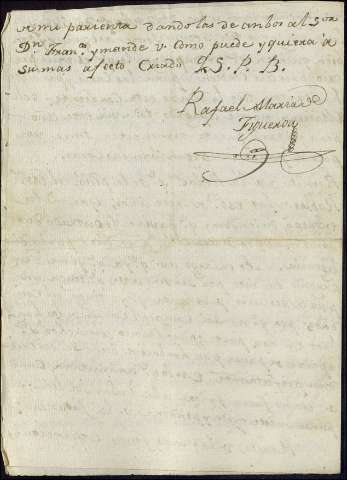 a mi parienta dandolas de ambos al Sor
Dn. Fran.co y mande v. como puede y quiera à
su mas afecto Criado Q. S. P. B.
Rafael Maria de
Figueroa